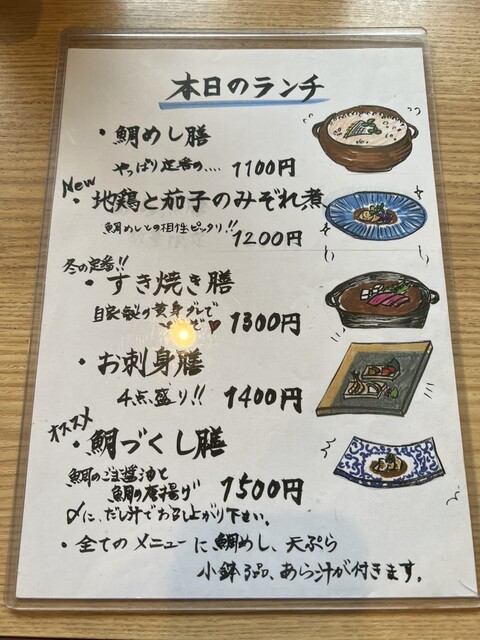 本日のランチ
・鯛めし膳
やっぱり定番の.... 1100円
New
・地鶏と茄子のみぞれ煮
鯛めしとの相性ピッタリ!! 1200円
冬の定番!!
・すき焼き膳
自家製の黄身ダレで
1300円
・お刺身膳
4点盛り!! 1400円
オススメ
・鯛づくし膳
鯛のご醤油と
鯛の唐揚げ 1500円
〆に、だし汁でお召し上がり下せい。
・全てのメニューに鯛めし、天ぷら
小鉢3品、あら汁が付きます。